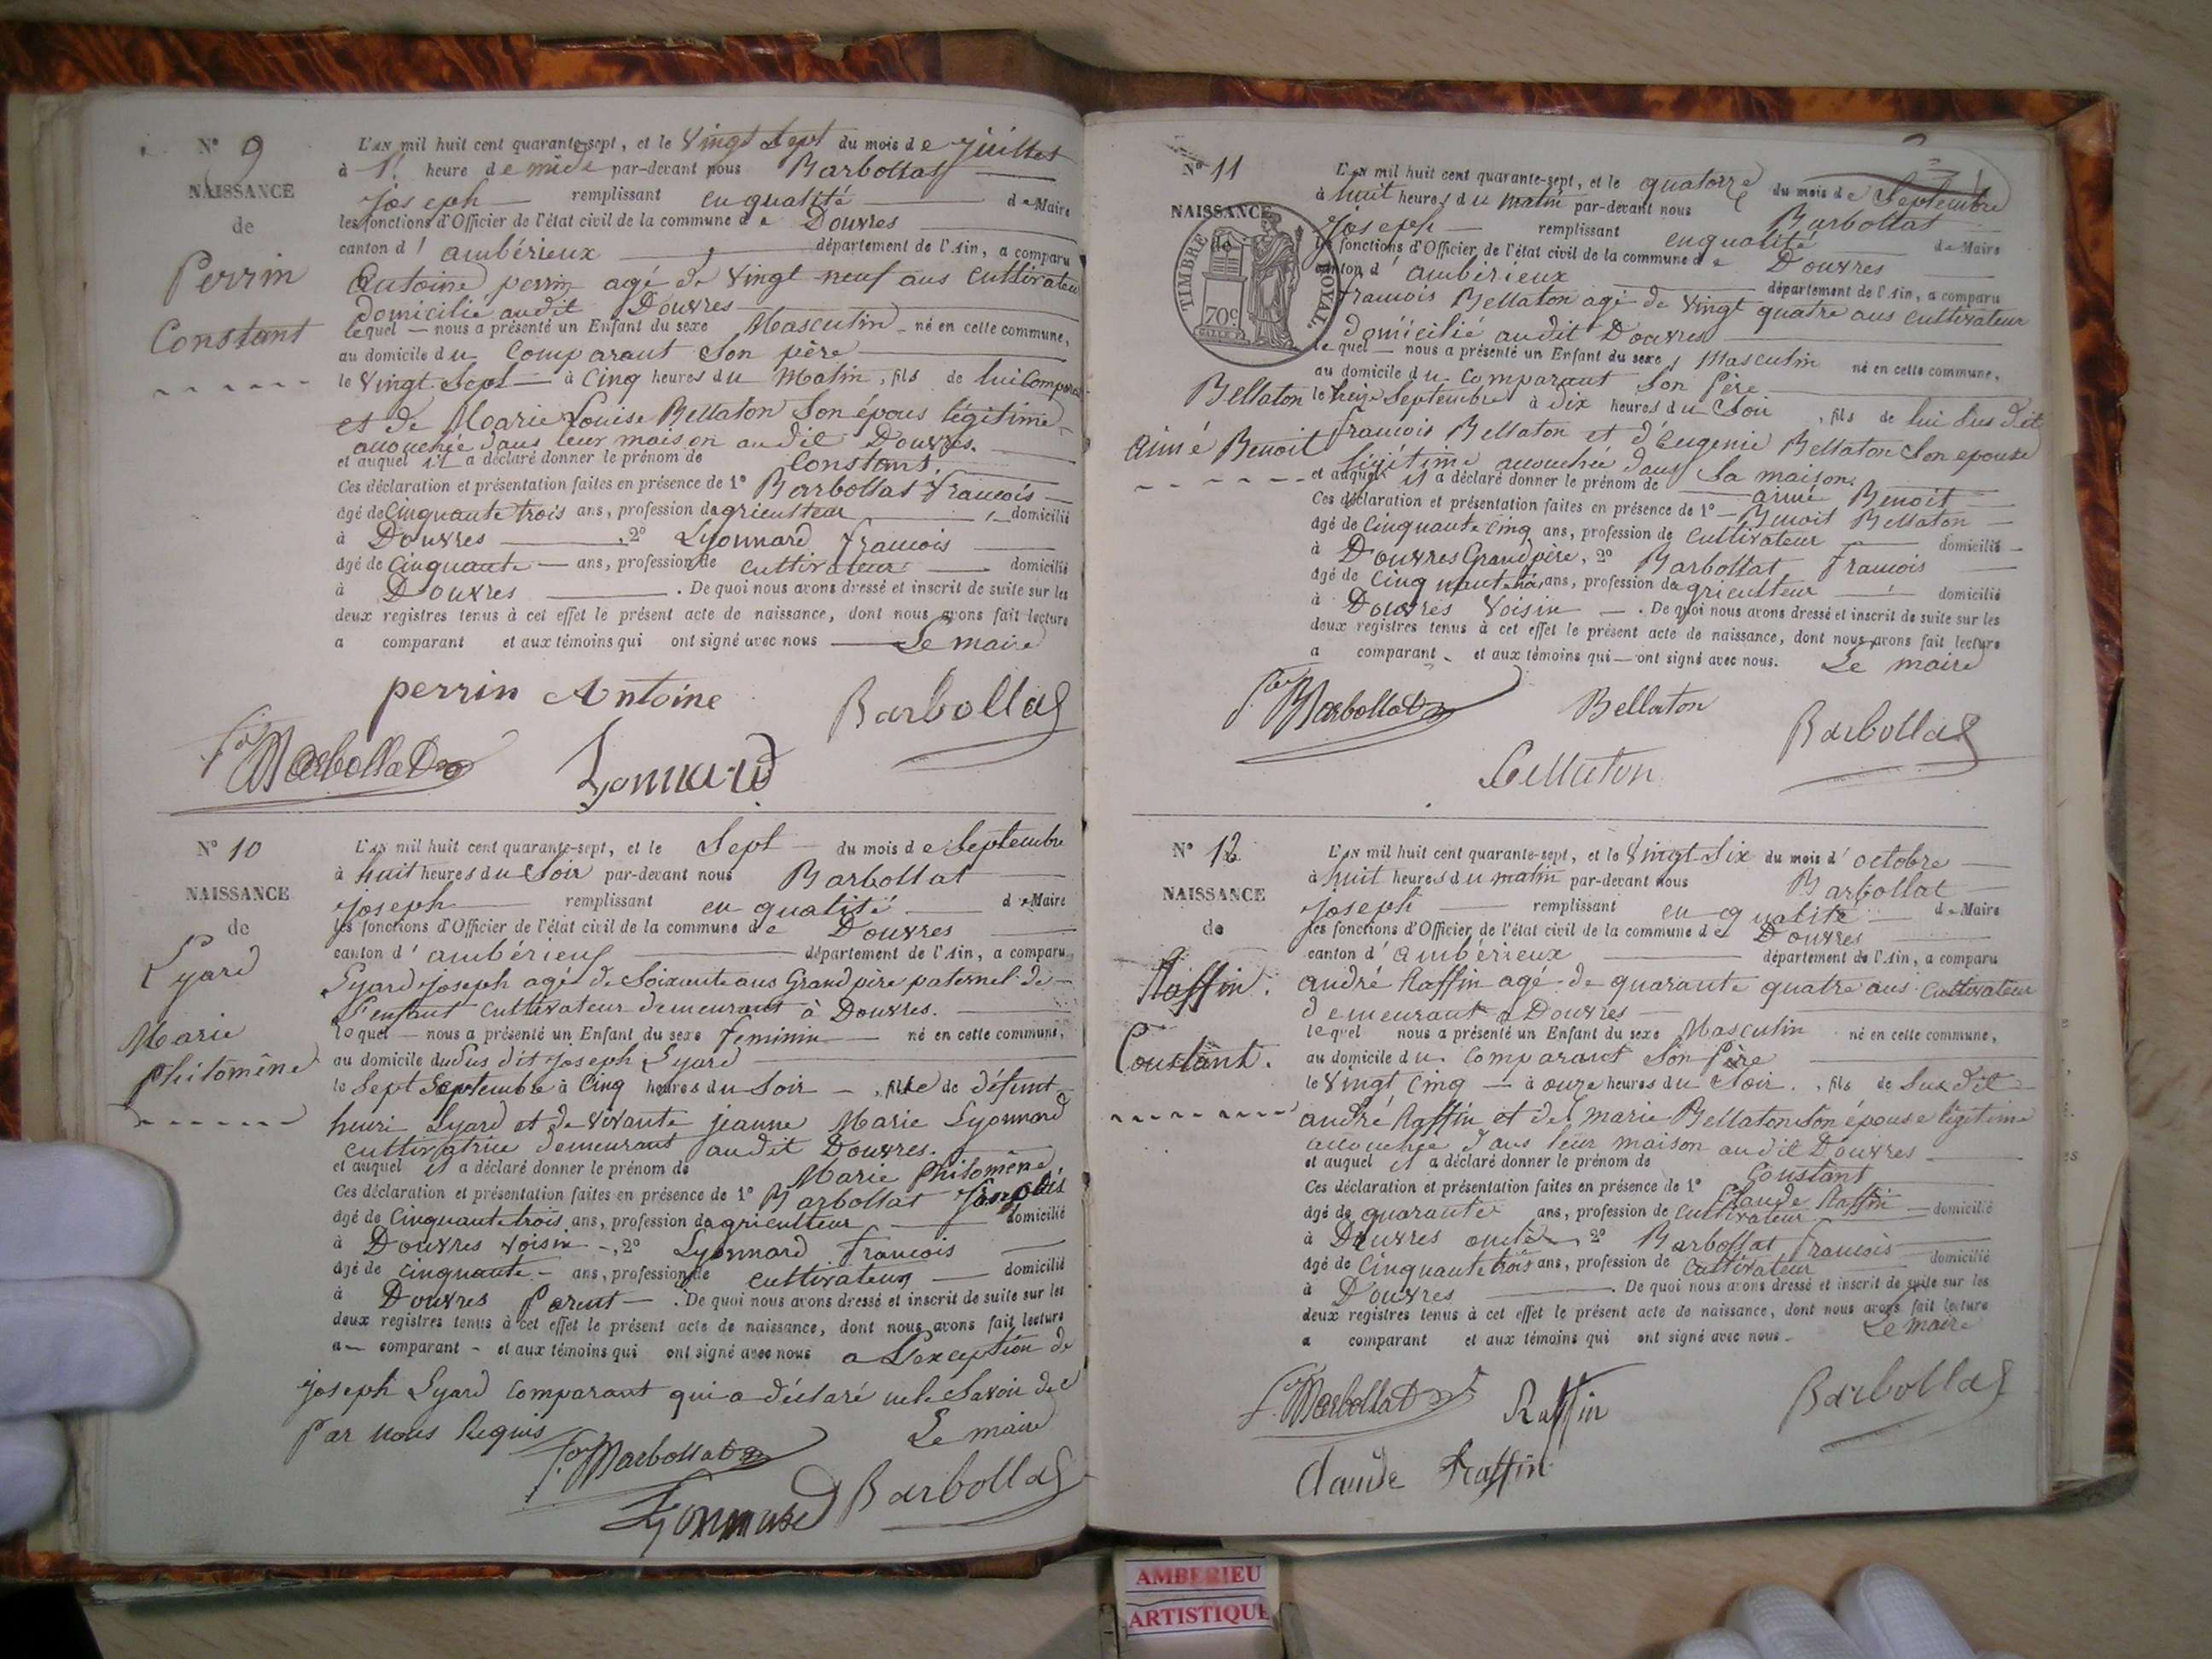 N° 9
NAISSANCE
de
Perrin
Constant
L'AN mil huit cent quarante-sept, et le Vingt Sept du mois de juillet
à 1 heure de midi par-devant nous Barbollat
joseph remplissant en qualité de Maire
les fonctions d'Officier de l'état civil de la commune de Douvres
canton d'ambérieux département de l'Ain, a comparu
Antoine perrin agé de Vingt neuf ans Cultivateur
domicilié audit Douvres
lequel nous a présenté un Enfant du sexe Masculin né en cette commune,
au domicile du Comparant Son père
le Vingt Sept à Cinq heures du Matin, fils de lui Comparant
et de Marie Louise Bellaton Son épous légitime
accouchée dans leur maison audit Douvres.
et auquel il a déclaré donner le prénom de Constant.
Ces déclaration et présentation faites en présence de 1° Barbollat francois
âgé de Cinquante trois ans, profession dagriculteur domicilié
à Douvres, 2° Lyonnard francois
âgé de Cinquante ans, profession de cultivateur domicilié
à Douvres. De quoi nous avons dressé et inscrit de suite sur les
deux registres tenus à cet effet le présent acte de naissance, dont nous avons fait lecture
a comparant et aux témoins qui ont signé avec nous Le maire
perrin Antoine Barbollat
Barbollat Lyonnard
N° 10
NAISSANCE
de
Lyard
Marie
philomène
L'AN mil huit cent quarante-sept, et le Sept du mois de Septembre
à huit heures du Soir par-devant nous Barbollat
joseph remplissant en qualité de Maire
les fonctions d'Officier de l'état civil de la commune de Douvres
canton d'ambérieux département de l'Ain, a comparu
Lyard joseph agé de Soixante ans Grand père paternel de
L'enfant Cultivateur demeurant à Douvres.
lequel nous a présenté un Enfant du sexe feminin né en cette commune,
au domicile du Sus dit joseph Lyard
le Sept Septembre à Cinq heures du Soir, fille de défunt
henri Lyard et de vivante jeanne Marie Lyonnard
cultivatrice demeurant audit Douvres.
et auquel il a déclaré donner le prénom de Marie Philomène
Ces déclaration et présentation faites en présence de 1° Barbollat francois
âgé de Cinquante trois ans, profession dagriculteur domicilié
à Douvres voisin, 2° Lyonnard francois
âgé de Cinquante ans, profession de cultivateur domicilié
à Douvres Parent. De quoi nous avons dressé et inscrit de suite sur les
deux registres tenus à cet effet le présent acte de naissance, dont nous avons fait lecture
a comparant et aux témoins qui ont signé avec nous a L'exception de
joseph Lyard Comparant qui a déclaré ne le Savoir de
par nous Requis Le maire
Barbollat
Lyonnard Barbollat
N° 11
NAISSANCE
de
TIMBRE ROYAL.
70c
Bellaton
aimé Benoit
L'AN mil huit cent quarante-sept, et le quatorze du mois de Septembre
à huit heures du matin par-devant nous Barbollat
joseph remplissant en qualité de Maire
les fonctions d'Officier de l'état civil de la commune de Douvres
canton d'ambérieux département de l'Ain, a comparu
francois Bellaton agé de Vingt quatre ans cultivateur
domicilié audit Douvres
lequel nous a présenté un Enfant du sexe Masculin né en cette commune,
au domicile du Comparant Son Père
le treize Septembre à dix heures du Soir, fils de lui Sus dit
francois Bellaton et d'Eugenie Bellaton Son epouse
légitime accouchée dans Sa maison.
et auquel il a déclaré donner le prénom de aimé Benoit
Ces déclaration et présentation faites en présence de 1° Benoit Bellaton
âgé de Cinquante Cinq ans, profession de Cultivateur domicilié
à Douvres Grand père, 2° Barbollat francois
âgé de Cinquante trois ans, profession dagriculteur domicilié
à Douvres Voisin. De quoi nous avons dressé et inscrit de suite sur les
deux registres tenus à cet effet le présent acte de naissance, dont nous avons fait lecture
a comparant et aux témoins qui ont signé avec nous. Le maire
Barbollat Bellaton Barbollat
Bellaton
N° 12
NAISSANCE
de
Raffin.
Constant.
L'AN mil huit cent quarante-sept, et le Vingt Six du mois d'octobre
à huit heures du matin par-devant nous Barbollat
joseph remplissant en qualité de Maire
les fonctions d'Officier de l'état civil de la commune de Douvres
canton d'ambérieux département de l'Ain, a comparu
andré Raffin agé de quarante quatre ans Cultivateur
demeurant a Douvres
lequel nous a présenté un Enfant du sexe Masculin né en cette commune,
au domicile du Comparant Son Père
le Vingt Cinq à onze heures du Soir, fils de Sus dit
andré Raffin et de marie Bellaton Son épouse légitime
accouchée dans leur maison audit Douvres
et auquel il a déclaré donner le prénom de Constant
Ces déclaration et présentation faites en présence de 1° Claude Raffin
âgé de quarante ans, profession de Cultivateur domicilié
à Douvres oncle, 2° Barbollat francois
âgé de Cinquante trois ans, profession de Cultivateur domicilié
à Douvres. De quoi nous avons dressé et inscrit de suite sur les
deux registres tenus à cet effet le présent acte de naissance, dont nous avons fait lecture
a comparant et aux témoins qui ont signé avec nous. Le maire
Barbollat Raffin Barbollat
Claude Raffin
AMBERIEU
ARTISTIQUE